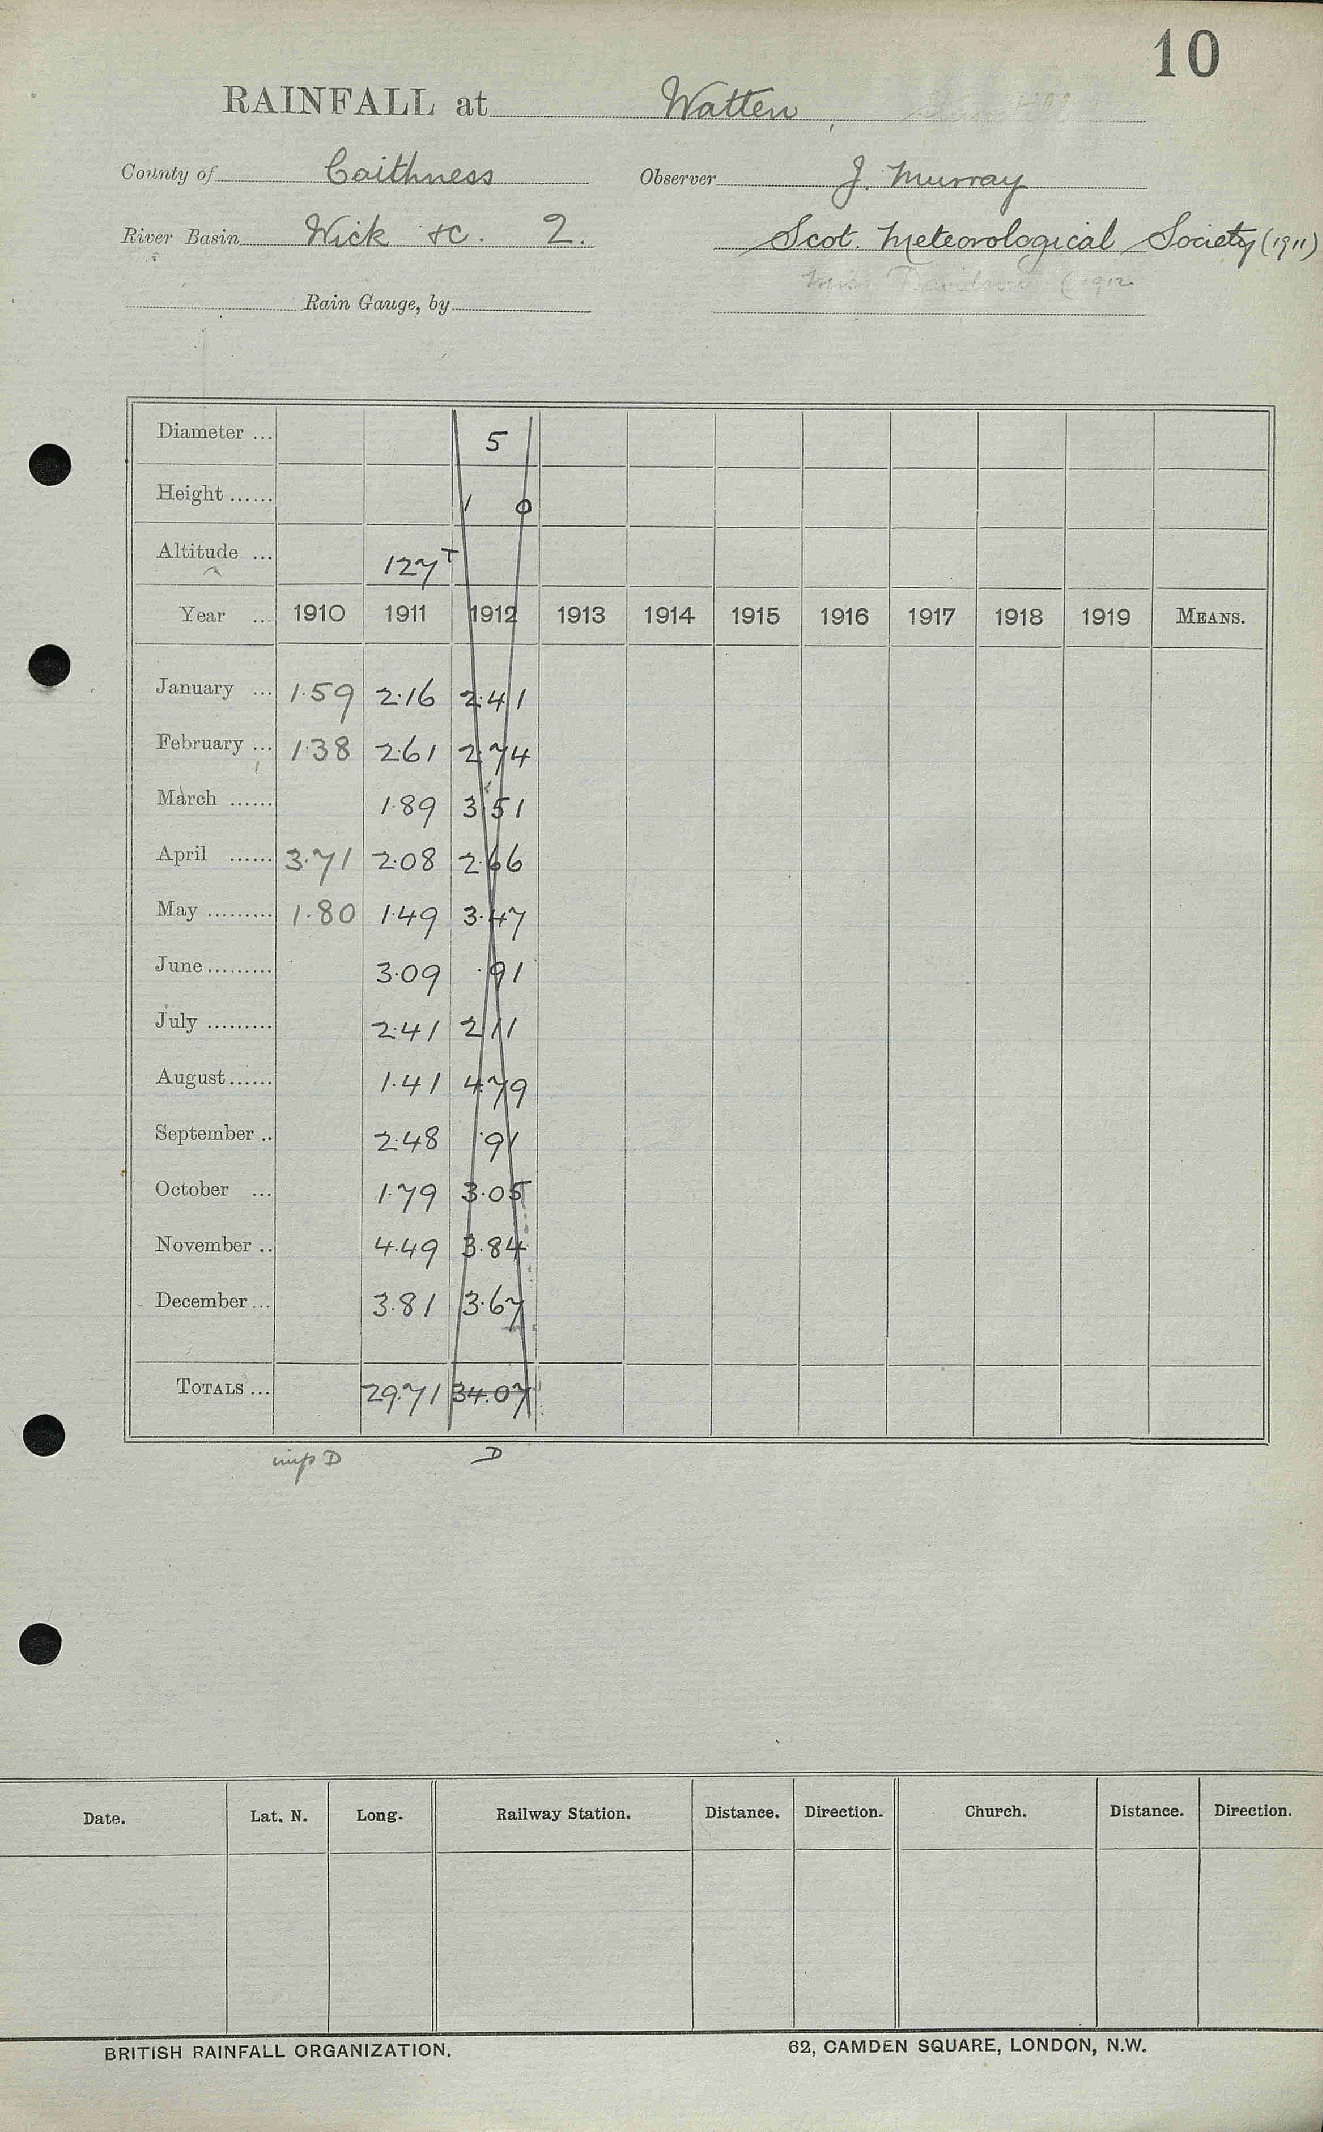 10
RAINFALL at Watten
County of Caithness Observer J. Murray
River Basin Wick &c. 2. Scot. Meteorological Society (1911)
Miss Davidson (1912
Rain Gauge, by
Diameter ... 5
Height ...... 1 0
Altitude ... 127 T
Year ... 1910 1911 1912 1913 1914 1915 1916 1917 1918 1919 MEANS.
January ... 1.59 2.16 2.41
February ... 1.38 2.61 2.74
March ...... 1.89 3.51
April ...... 3.71 2.08 2.66
May ......... 1.80 1.49 3.47
June ......... 3.09 .91
July ......... 2.41 2.11
August ...... 1.41 4.79
September .. 2.48 .91
October ... 1.79 3.05
November .. 4.49 3.84
December ... 3.81 3.67
TOTALS ... 29.71 34.07
imp D D
Date. Lat. N. Long. Railway Station. Distance. Direction. Church. Distance. Direction.
BRITISH RAINFALL ORGANIZATION. 62, CAMDEN SQUARE, LONDON, N.W.